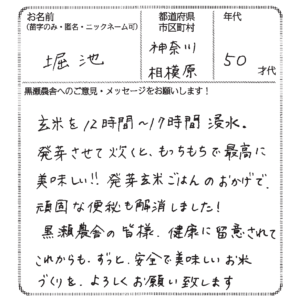 お名前
(苗字のみ・匿名・ニックネーム可)
堀池
都道府県
市区町村
神奈川
相模原
年代
50才代
黒瀬農舎へのご意見・メッセージをお願いします！
玄米を12時間〜17時間浸水。
発芽させて炊くと、もっちもちで最高に
美味しい!! 発芽玄米ごはんのおかげで、
頑固な便秘も解消しました！
黒瀬農舎の皆様、健康に留意されて
これからも、ずっと、安全で美味しいお米
づくりを、よろしくお願い致します